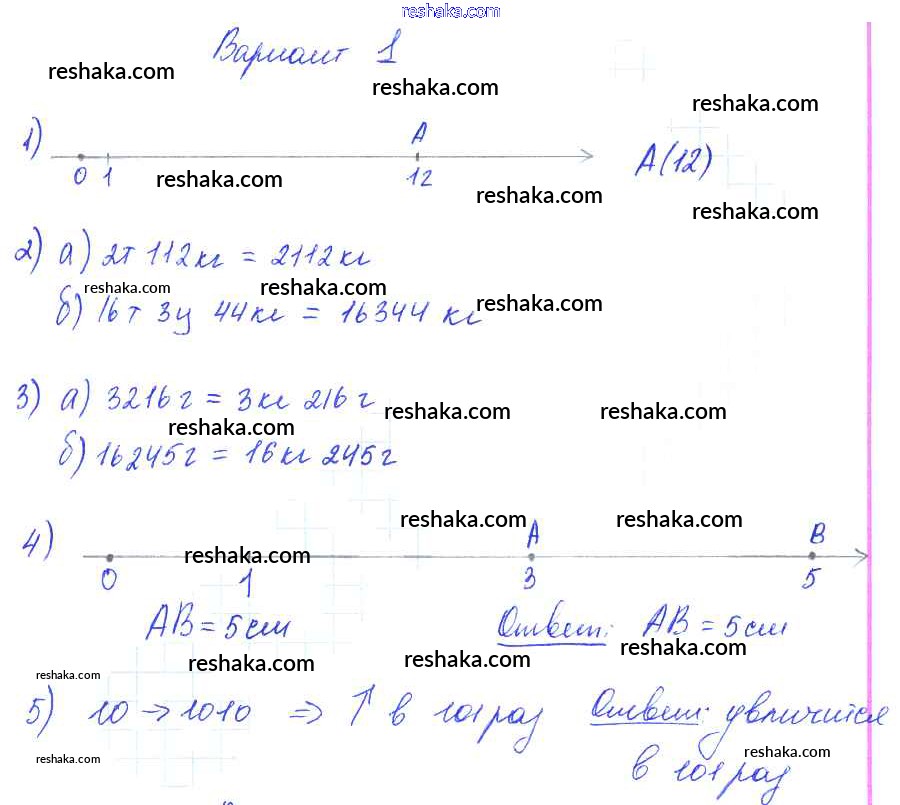 reshaka.com
Вариант 1
reshaka.com
reshaka.com
reshaka.com
1) 0 1 A 12 A(12)
reshaka.com
reshaka.com
reshaka.com
2) а) 2т 112кг = 2112кг
reshaka.com
reshaka.com
reshaka.com
б) 16т 3ц 44кг = 16344 кг
3) а) 3216г = 3кг 216г
reshaka.com
reshaka.com
reshaka.com
б) 16245г = 16кг 245г
reshaka.com
reshaka.com
4) 0 1 A 3 B 5
reshaka.com
AB = 5см Ответ: AB = 5см
reshaka.com
reshaka.com
reshaka.com
reshaka.com
5) 10 → 1010 ⇒ ↑ в 101 раз Ответ: увеличится
в 101 раз
reshaka.com
reshaka.com